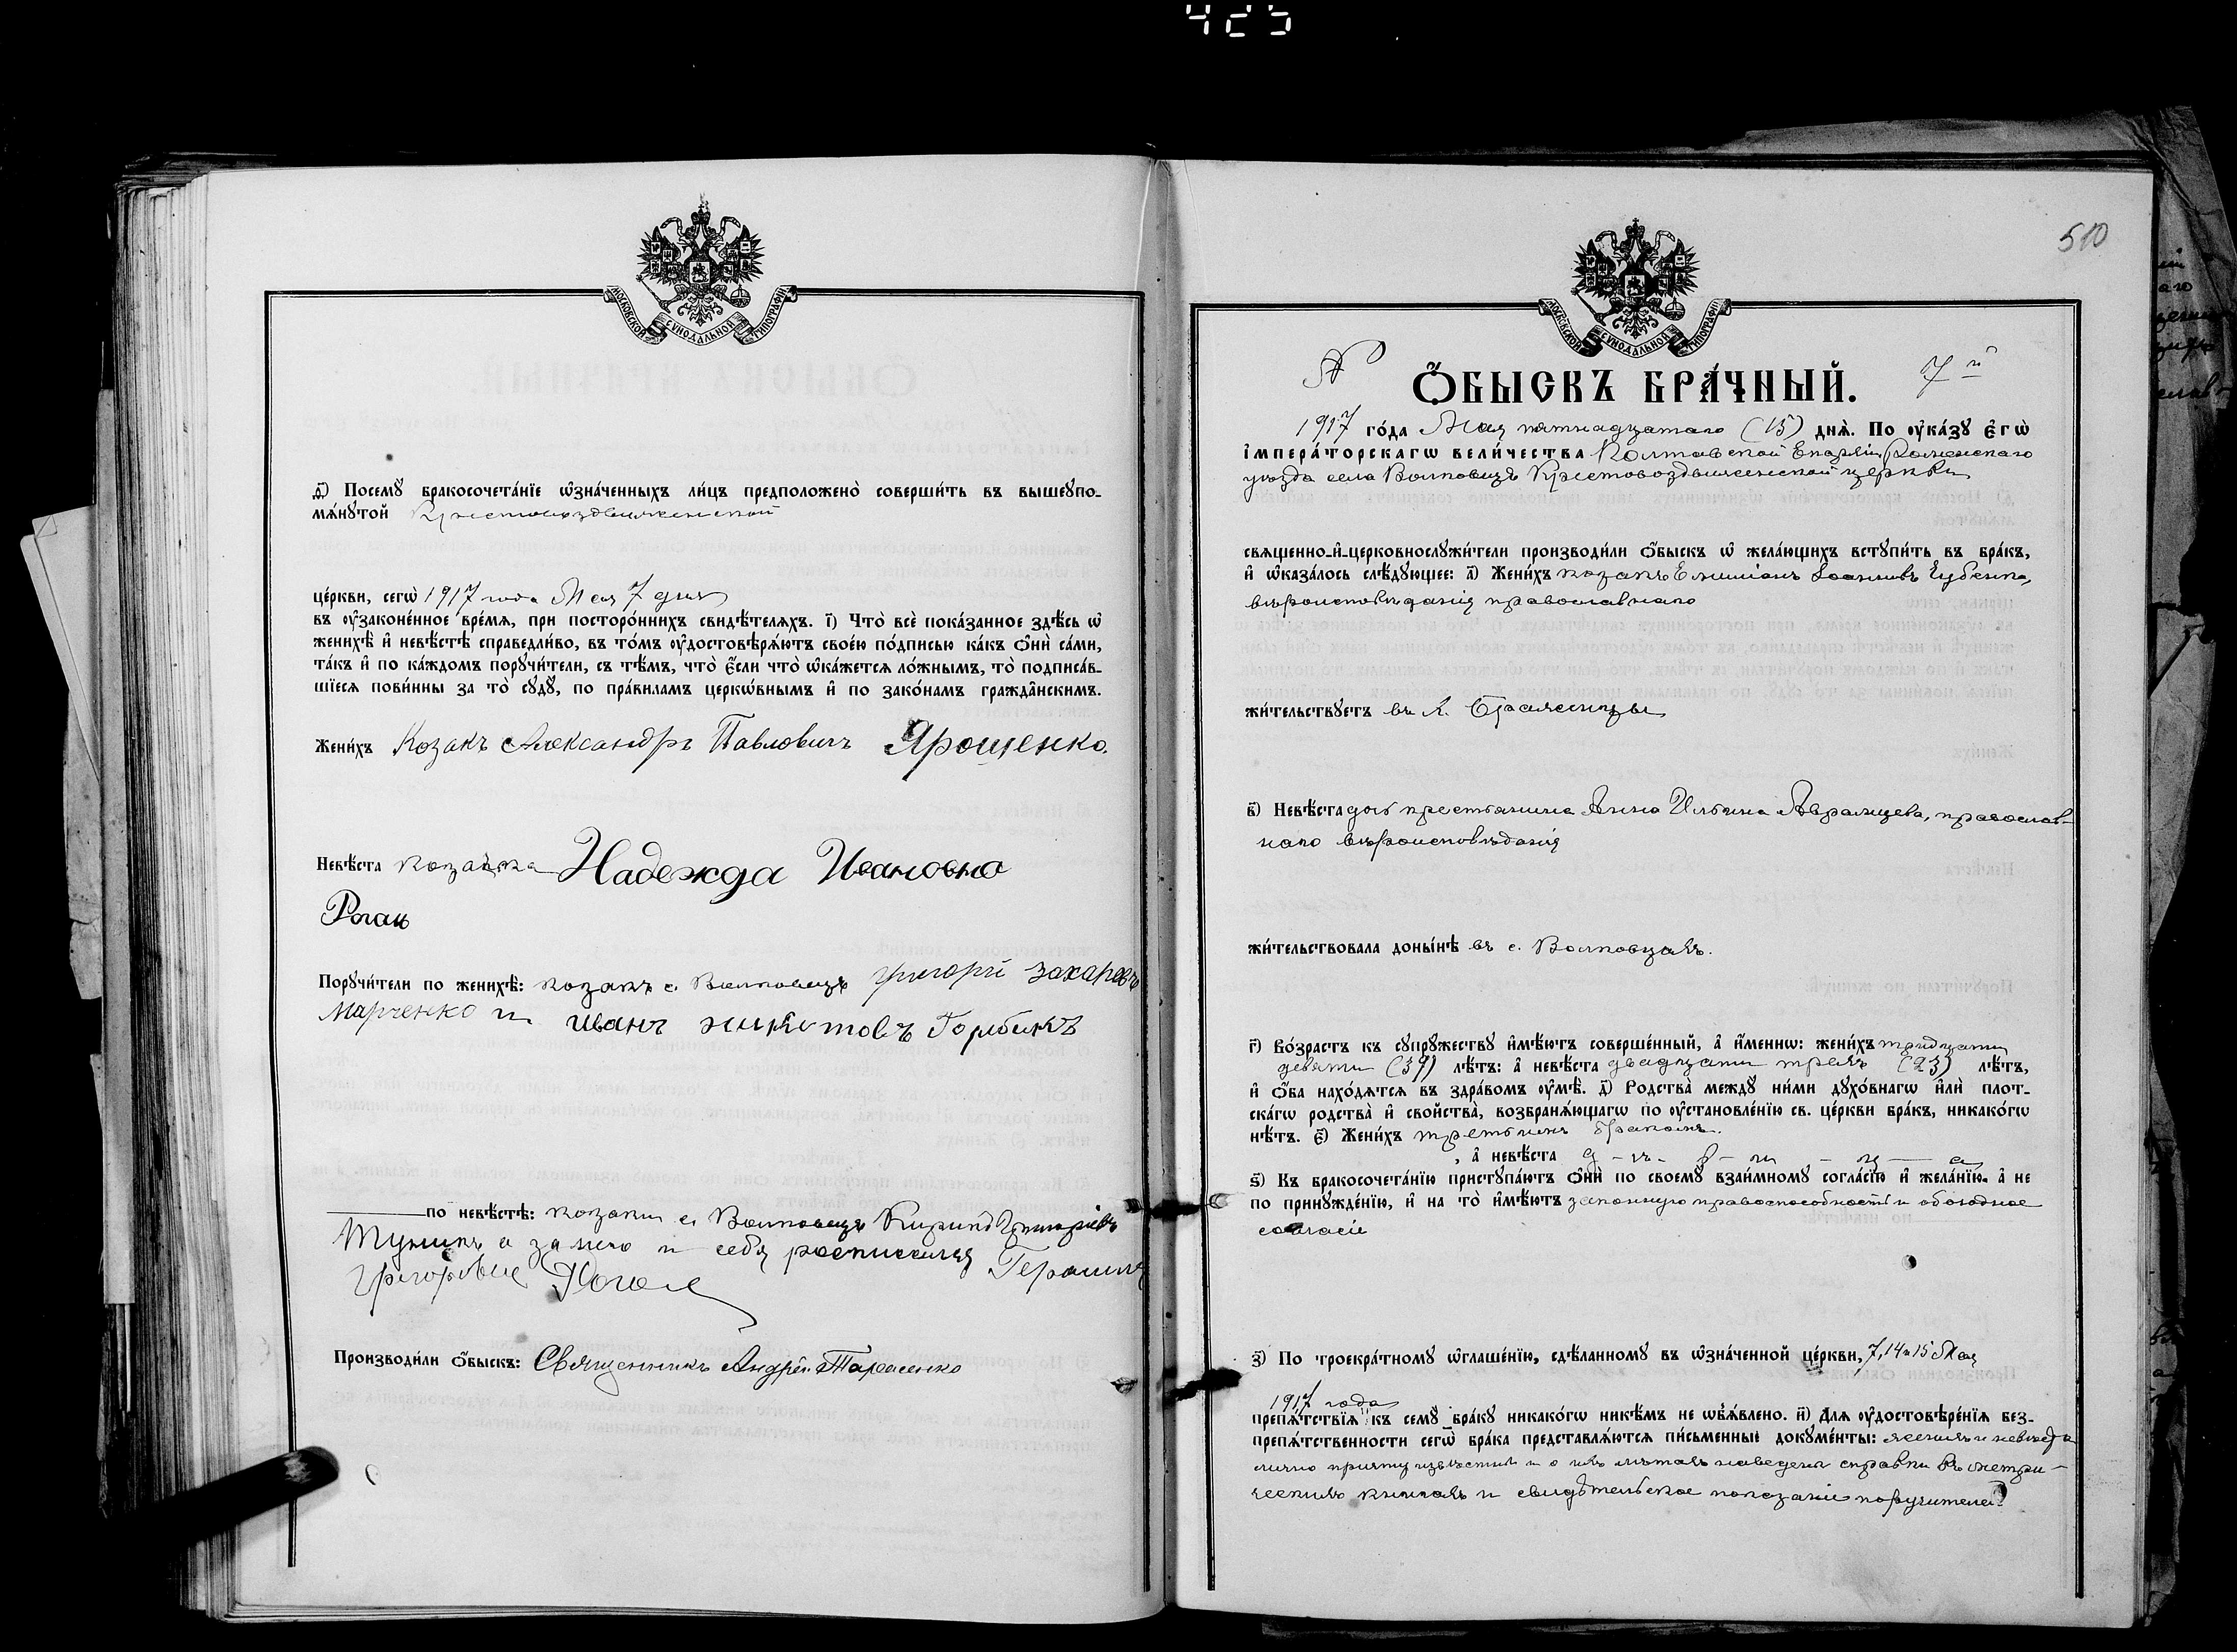 425
МОСКОВСКОЙ СѴНОДАЛЬНОЙ ТИПОГРАФІИ
ѳ҃) Посемꙋ̀ бракосочета́нїе ѡ҆зна́ченныхъ ли́цъ предположено̀ соверши́ть въ вышеꙋпо-
мѧ́нꙋтой Крестовоздвиженской
це́ркви, сегѡ̀ 1917 года Мая 7 дня
въ ᲂу҆законе́нное вре́мѧ, при посторо́ннихъ свидѣ́телѧхъ. і҃) Что̀ всѐ пока́занное здѣ́сь ѡ҆
женихѣ̀ и҆ невѣ́стѣ справедли́во, въ то́мъ ᲂу҆достовѣрѧ́ютъ свое́ю по́дписью ка́къ ѻ҆нѝ са́ми,
та́къ и҆ по ка́ждомъ порꙋчи́тели, съ тѣ́мъ, что̀ є҆́сли что̀ ѡ҆ка́жетсѧ ло́жнымъ, то̀ подписа́в-
шїесѧ пови́нны за то̀ сꙋдꙋ̀, по пра́виламъ церкѡ́внымъ и҆ по зако́намъ гражда́нскимъ.
Жени́хъ Козакъ Александръ Павловичъ Ярошенко.
Невѣ́ста козачка Надежда Ивановна
Роган
Порꙋчи́тели по женихѣ̀: козакъ с. Волковецъ Григорій Захаревъ
Марченко и Иванъ
по невѣ́стѣ: козаки с. Волковецъ Кирилъ Григоріевъ
а за него и себя росписался Герасимъ
Григоровъ
Производи́ли ѻ҆́быскъ: Священникъ Андрей Тарасенко
510
МОСКОВСКОЙ СѴНОДАЛЬНОЙ ТИПОГРАФІИ
№ Ѻ҆́БЫСКЪ БРА́ЧНЫЙ. 7й
1917 го́да Мая пятнадцатаго (15) днѧ̀. По ᲂу҆ка́зꙋ є҆гѡ̀
і҆мпера́торскагѡ вели́чества Полтавской Епархіи, Роменскаго
уѣзда села Волковецъ Крестовоздвиженской церкви
свѧщенно-и҆-церковнослꙋжи́тели производи́ли ѻ҆́быскъ ѡ҆ жела́ющихъ встꙋпи́ть въ бра́къ,
и҆ ѡ҆каза́лось слѣ́дꙋющее: а҃) Жени́хъ козакъ Емиліанъ Іоанновъ Губенко,
вѣроисповѣданія православнаго
жи́тельствꙋетъ въ д.
в҃) Невѣ́ста дочь крестьянина Анна Ильина православ-
наго вѣроисповѣданія
жи́тельствовала доны́нѣ въ с. Волковцахъ.
г҃) Во́зрастъ къ сꙋпрꙋ́жествꙋ и҆мѣ́ютъ соверше́нный, а҆ и҆́меннѡ: жени́хъ тридцати
девяти (39) лѣ́тъ: а҆ невѣ́ста двадцати трехъ (23) лѣ́тъ,
и҆ ѻ҆́ба нахо́дѧтсѧ въ здра́вомъ ᲂу҆мѣ̀. д҃) Родства̀ междꙋ̀ ни́ми дꙋхо́внагѡ и҆лѝ плот-
ска́гѡ родства̀ и҆ сво́йства̀, возбранѧ́ющагѡ по ᲂу҆становле́нїю св. це́ркви бра́къ, никако́гѡ
нѣ́тъ. є҃) Жени́хъ третьимъ бракомъ.
, а҆ невѣ́ста д-ѣ-в-и-ц-а
ѕ҃) Къ бракосочета́нїю пристꙋпа́ютъ ѻ҆нѝ по своемꙋ̀ взаи́мномꙋ согла́сїю и҆ жела́нїю, а҆ не
по принꙋжде́нїю, и҆ на то̀ и҆мѣ́ютъ законную правоспособность и обоюдное
согласіе
з҃) По троекра́тномꙋ ѡ҆глаше́нїю, сдѣ́ланномꙋ въ ѡ҆зна́ченной це́ркви, 7, 14 и 15 Мая
1917 года
препѧ́тствїѧ къ семꙋ̀ бра́кꙋ никако́гѡ никѣ́мъ не ѡ҆б̾ѧ́влено. и҃) Длѧ ᲂу҆достовѣре́нїѧ без-
препѧ́тственности сегѡ̀ бра́ка представлѧ́ютсѧ пи́сьменные докꙋме́нты: женихъ и невѣста
лично причту извѣстны и о ихъ лѣтахъ наведены справки въ метри-
ческихъ книгахъ и свидѣтельское показаніе поручителей.